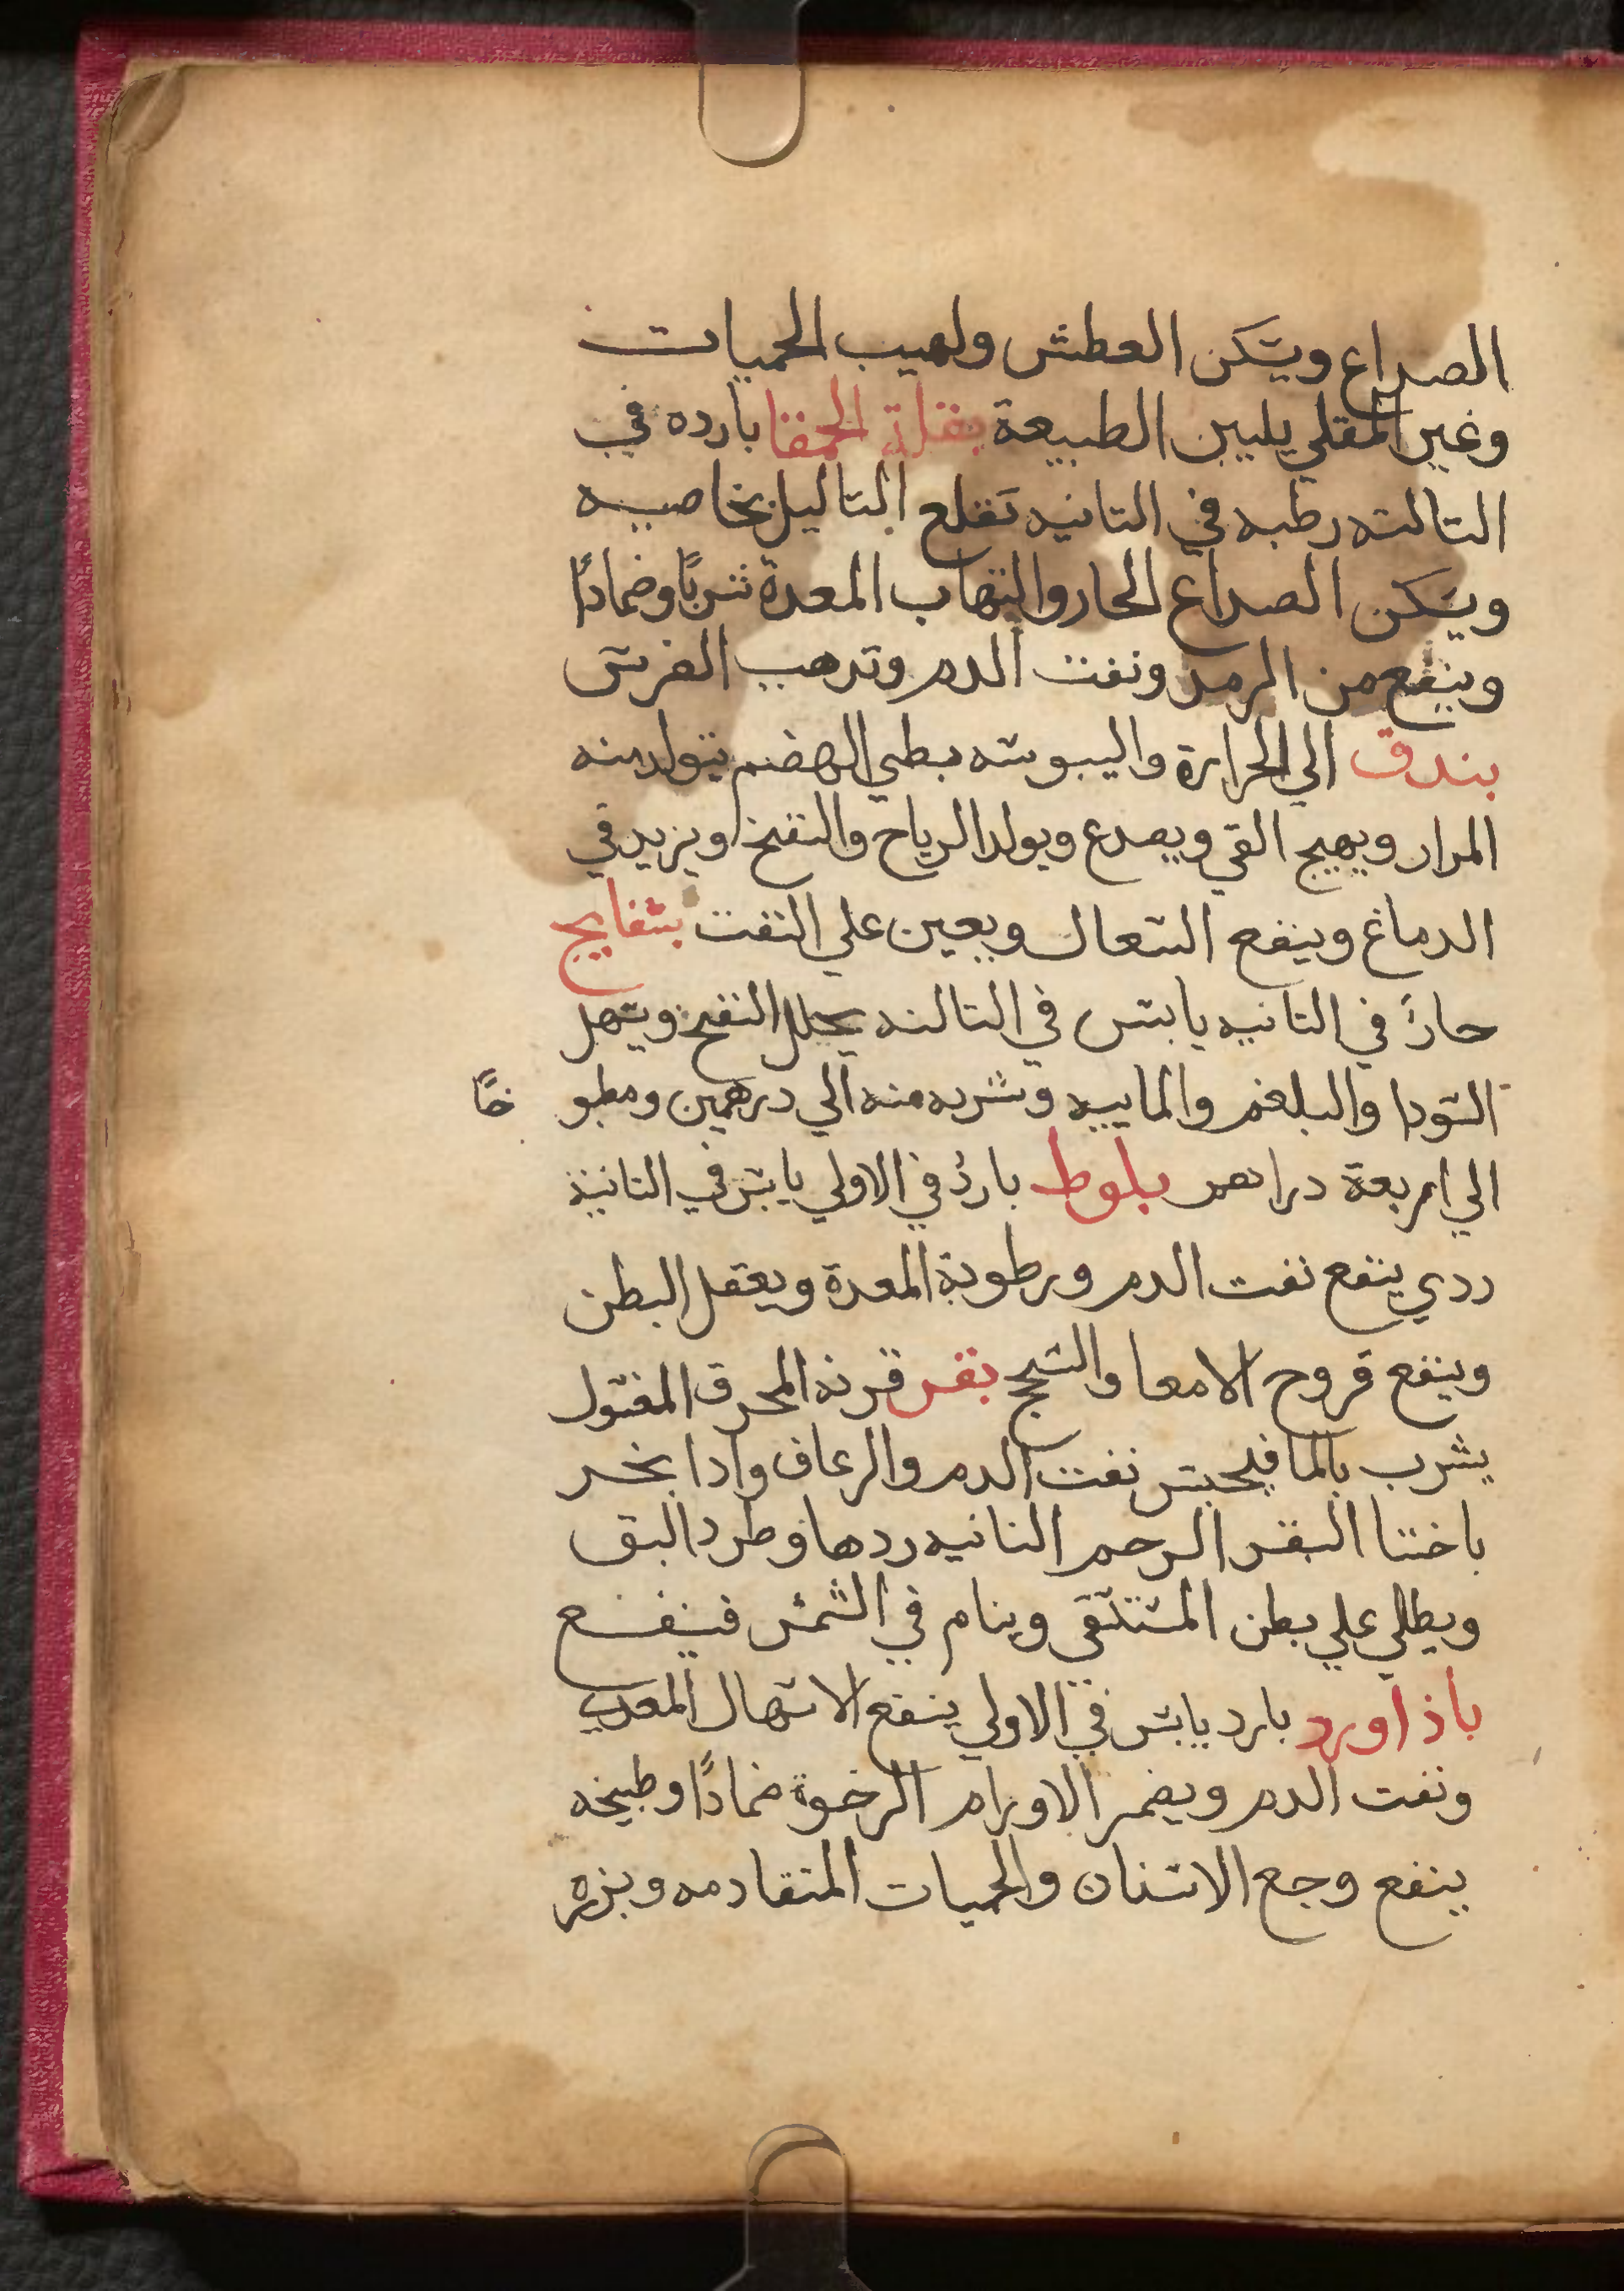 الصداع ويسكن العطش ولهيب الحميات
وغير المقلي يليين الطبيعة بقلة الحمقا بارده في
التالته رطبه في التانيه تقلع التاليل بخاصيه
ويسكن الصداع الحار والتهاب المعدة شربًا وضمادًا
وينفع من الرمد ونفت الدم وتدهب الضرس
بندق الي الحرارة واليبوسه بطي الهضم يتولد منه
المرار ويهيج القي ويصدع ويولد الرياح والنفخ ويزيد في
الدماغ وينفع السعال ويعين علي النفت بسفايج
حارً في التانيه يابس في التالته يحلل النفخ ويسهل
السودا والبلغم والماييه وشربه منه الي درهمين ومطبو خًا
الي اربعة دراهم بلوط باردُ في الاولي يابس في التانية
ردي ينفع نفت الدم ورطوبة المعدة ويعقل البطن
وينفع قروح الامعا والسحج بقر قرنه المحرق المغسول
يشرب بالما فيحبس نفت الدم والرعاف وادا بخر
باختا البقر الرحم النانيه ردها وطرد البق
ويطلي علي بطن المستسقي وينام في الشمس فينفع
باذاورد بارد يابس في الاولي ينفع الاسهال المعدي
ونفت الدم ويضمر الاورام الرخوة ضمادًا وطبيخه
ينفع وجع الاسنان والحميات المتقادمه وبزره